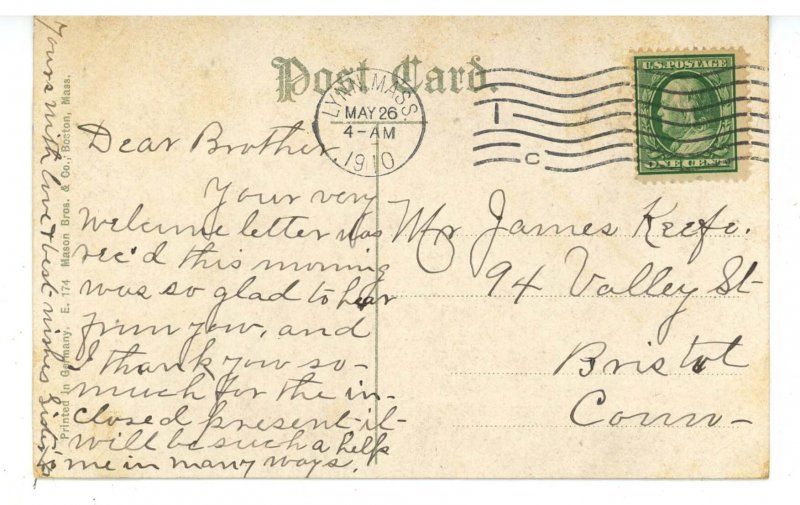 Post Card.
LYNN, MASS
MAY 26
4-AM
1910
1
C
U.S. POSTAGE
ONE CENT
Dear Brother,
Your very
welcome letter was
rec'd this morning
was so glad to hear
from you, and
I thank you so-
much for the in-
closed present-it-
will be such a help
me in many ways.
Yours with love & best wishes Sister
Mr James Keefe.
94 Valley St-
Bristol
Conn-
Printed in Germany. E. 174 Mason Bros. & Co., Boston, Mass.